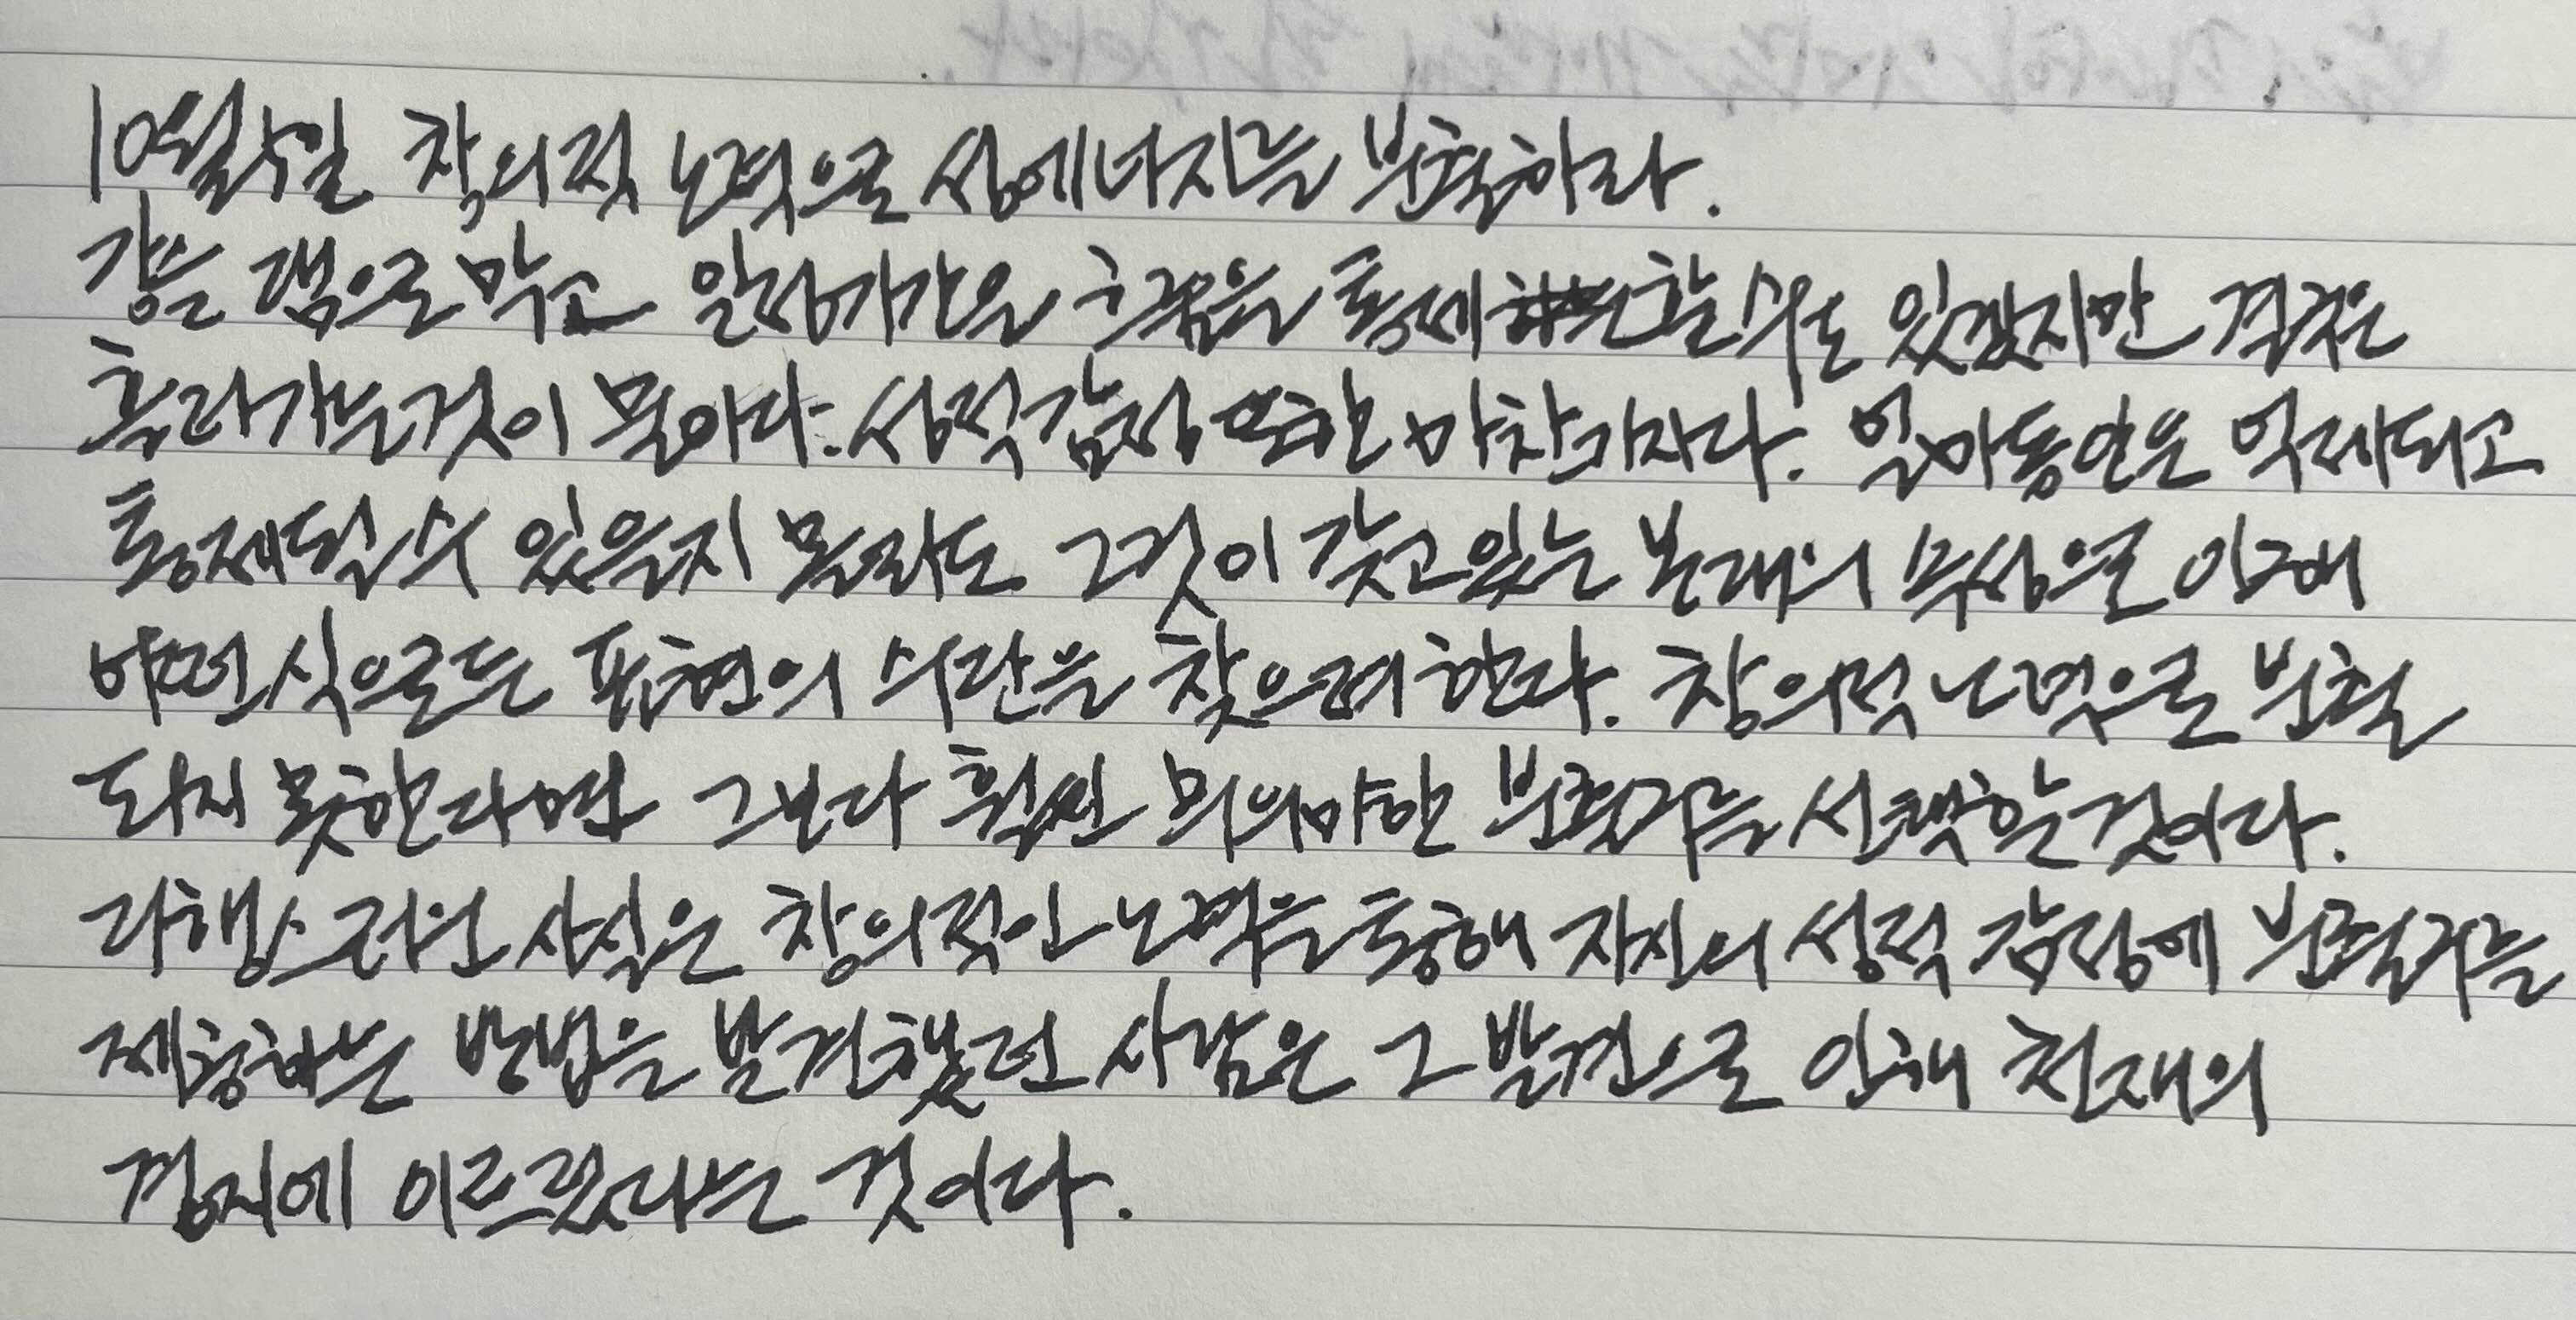 10월 5일 창의적 노력으로 성에너지를 분출하라.
강을 댐으로 막고 일정기간은 흐름을 통제 할수도 있겠지만 결국은
흘러가는것이 물이다. 성적감정 또한 마찬가지다. 얼마동안은 억제되고
통제될수 있을지 몰라도 그것이 갖고있는 본래의 속성으로 인해
어떤식으로든 표현의 수단을 찾으려 한다. 창의적 노력으로 분출
되지 못한다면 그보다 훨씬 무의미한 분출구를 선택할것이다.
다행스러운 사실은 창의적인 노력을 통해 자신의 성적 감정에 분출구를
제공하는 방법을 발견했던 사람은 그 발견으로 인해 천재의
경지에 이르렀다는 것이다.